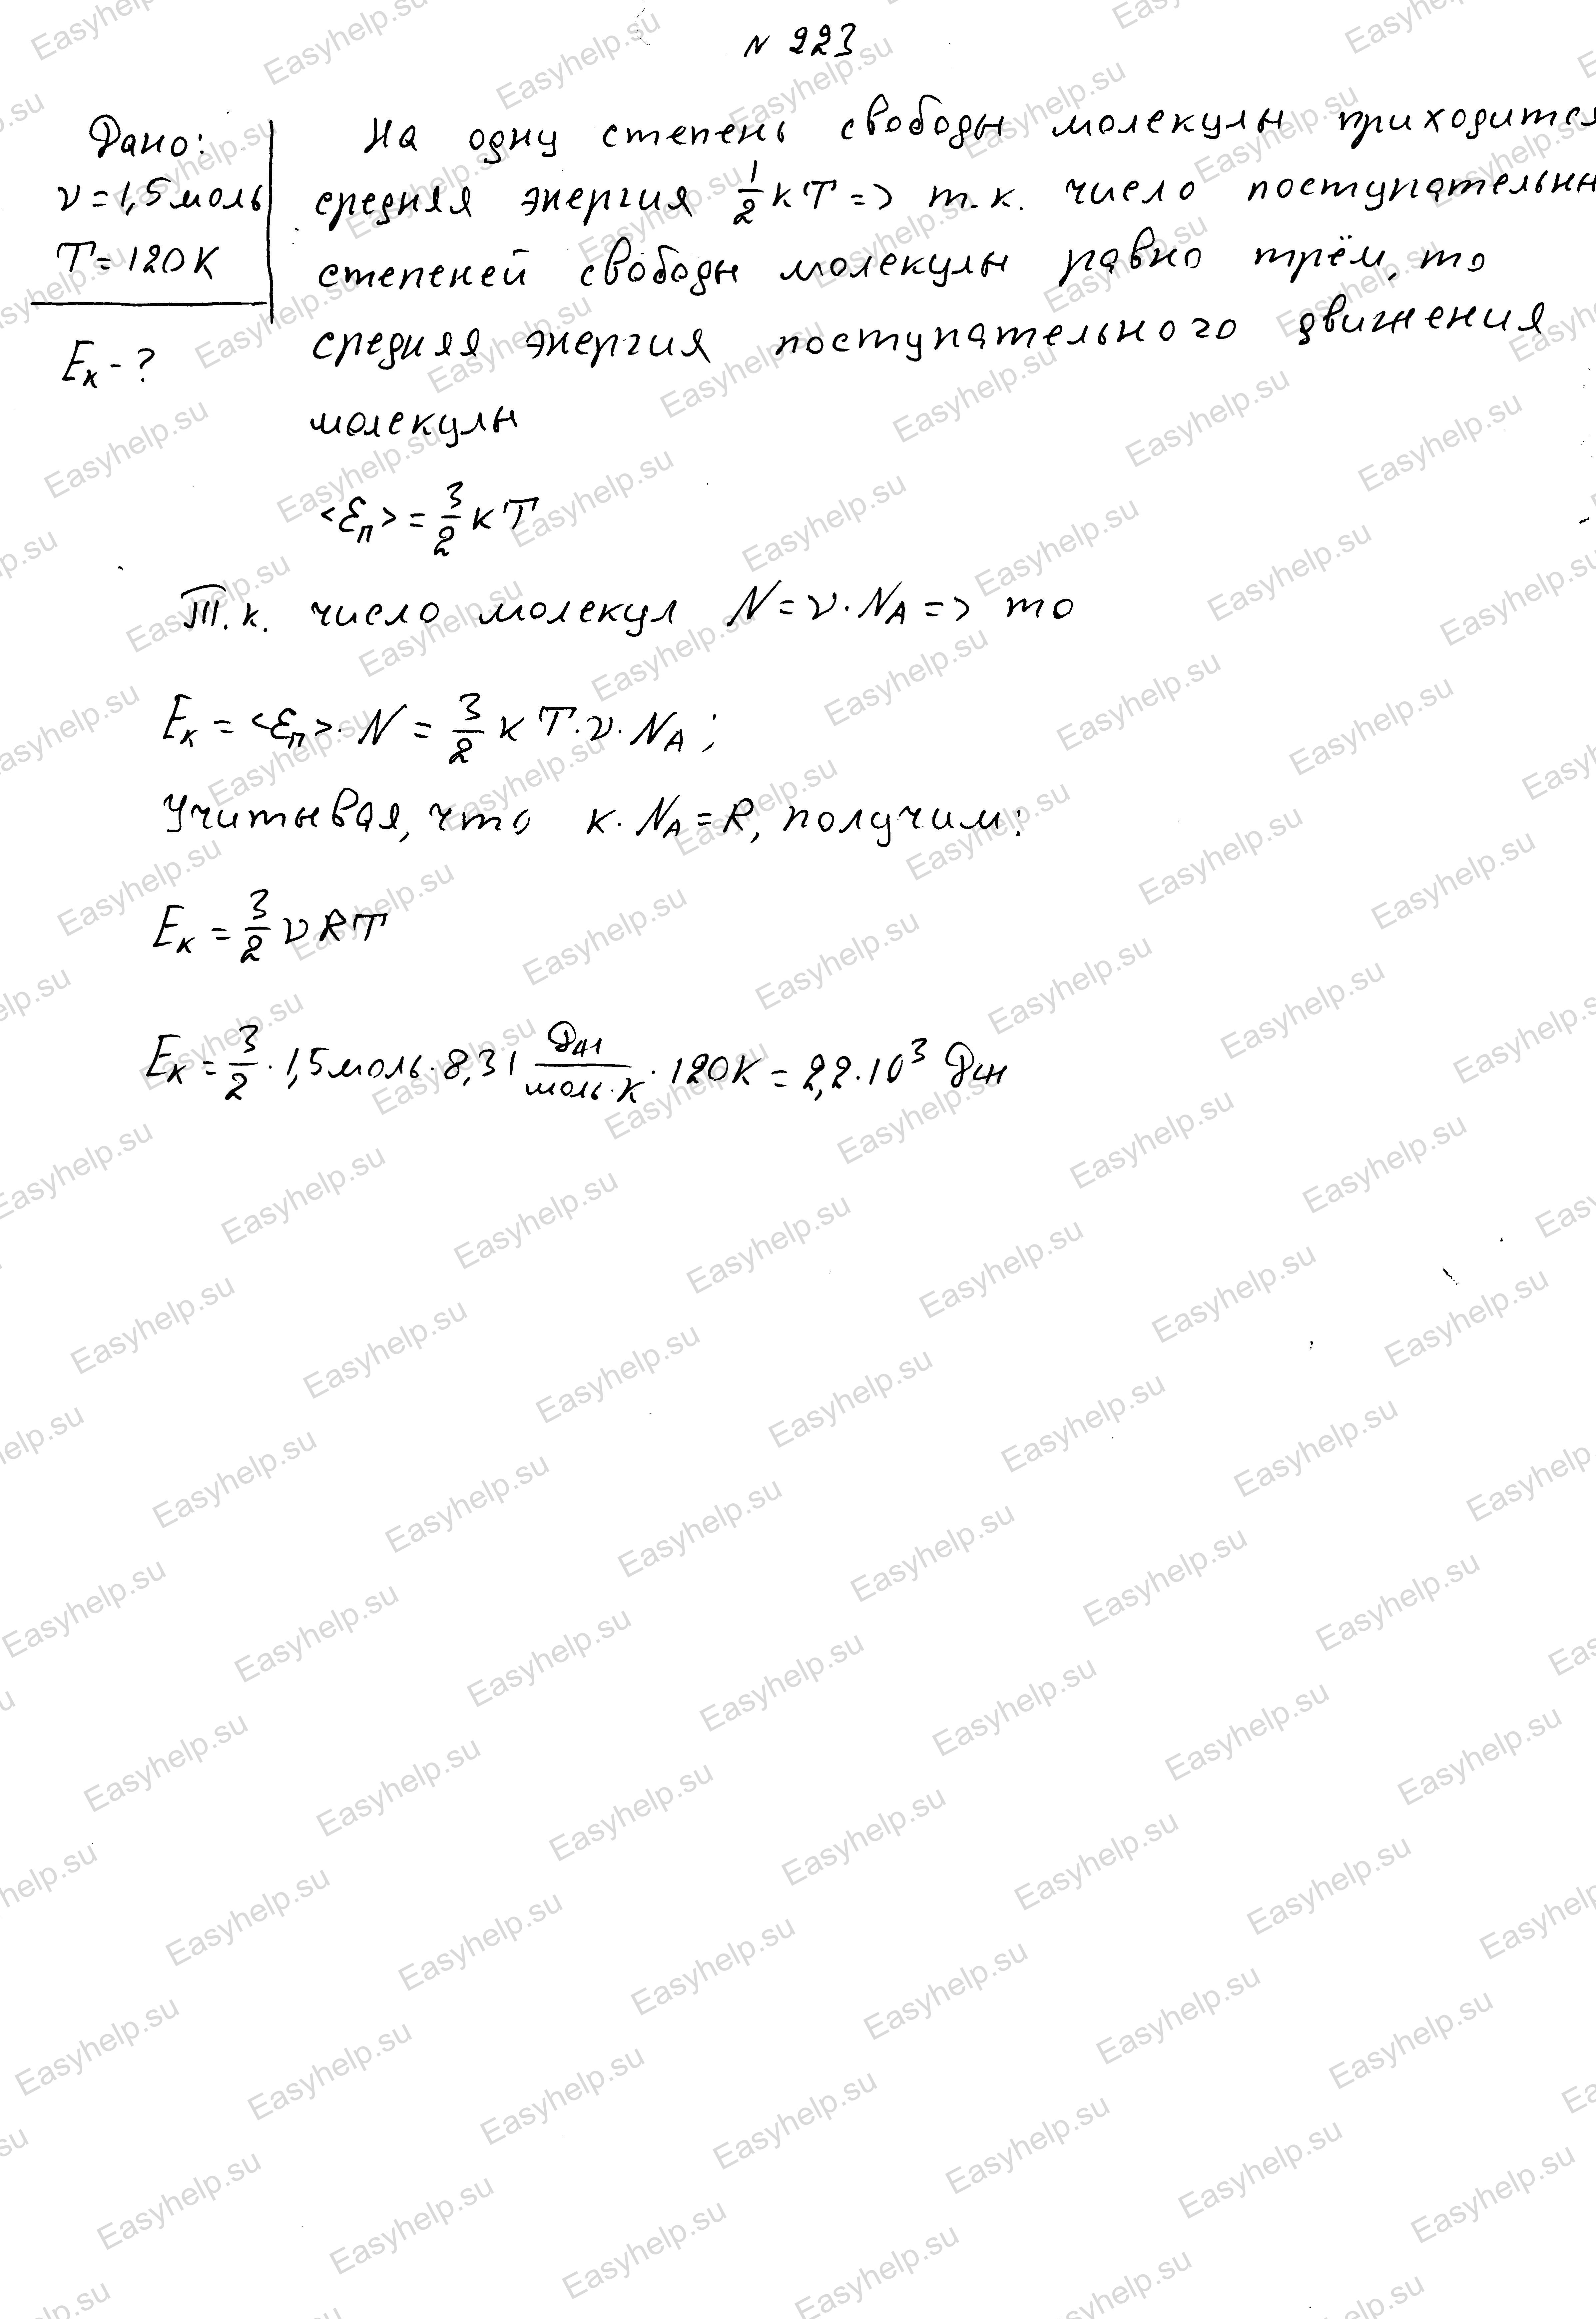 N 223
Дано:
ν = 1,5 моль
T = 120 К
Eк - ?
На одну степень свободы молекулы приходится
средняя энергия 1/2 кT => т.к. число поступательны
степеней свободы молекулы равно трём, то
средняя энергия поступательного движения
молекулы
<εп> = 3/2 кT
Т.к. число молекул N = ν · NA => то
Eк = <εп> · N = 3/2 к T · ν · NA ;
Учитывая, что к · NA = R, получим:
Eк = 3/2 ν R T
Eк = 3/2 · 1,5 моль · 8,31 Дж/моль·К · 120 К = 2,2 · 10³ Дж
Easyhelp.su